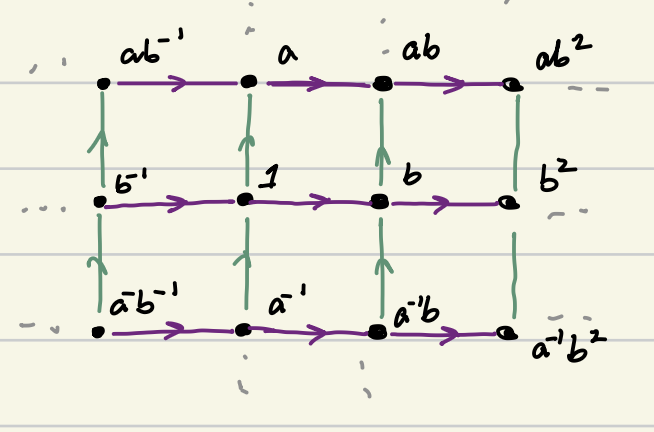 ab⁻¹ a ab ab²
b⁻¹ 1 b b²
a⁻b⁻¹ a⁻¹ a⁻¹b a⁻¹b²